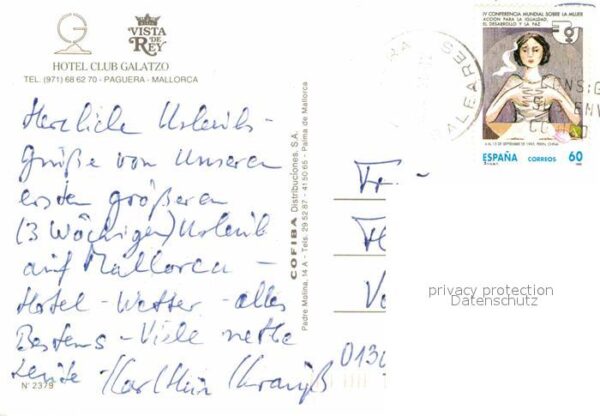 VISTA
DE
REY
HOTEL CLUB GALATZO
TEL. (971) 68 62 70 - PAGUERA - MALLORCA
Herzliche Urlaubs-
grüße von unseren
ersten größeren
(3 Wöchigen) Urlaub
auf Mallorca -
Hotel - Wetter - alles
Bestens - Viele nette
Leute -
Nº 2379
COFIBA Distribuciones, S.A.
Padre Molina, 14 A - Tels. 29 52 87 - 41 50 65 - Palma de Mallorca
IV CONFERENCIA MUNDIAL SOBRE LA MUJER
ACCION PARA LA IGUALDAD,
EL DESARROLLO Y LA PAZ
4 AL 15 DE SEPTIEMBRE DE 1995, PEKIN, CHINA
ESPAÑA CORREOS 60
BALEARES
Fr.
privacy protection
Datenschutz